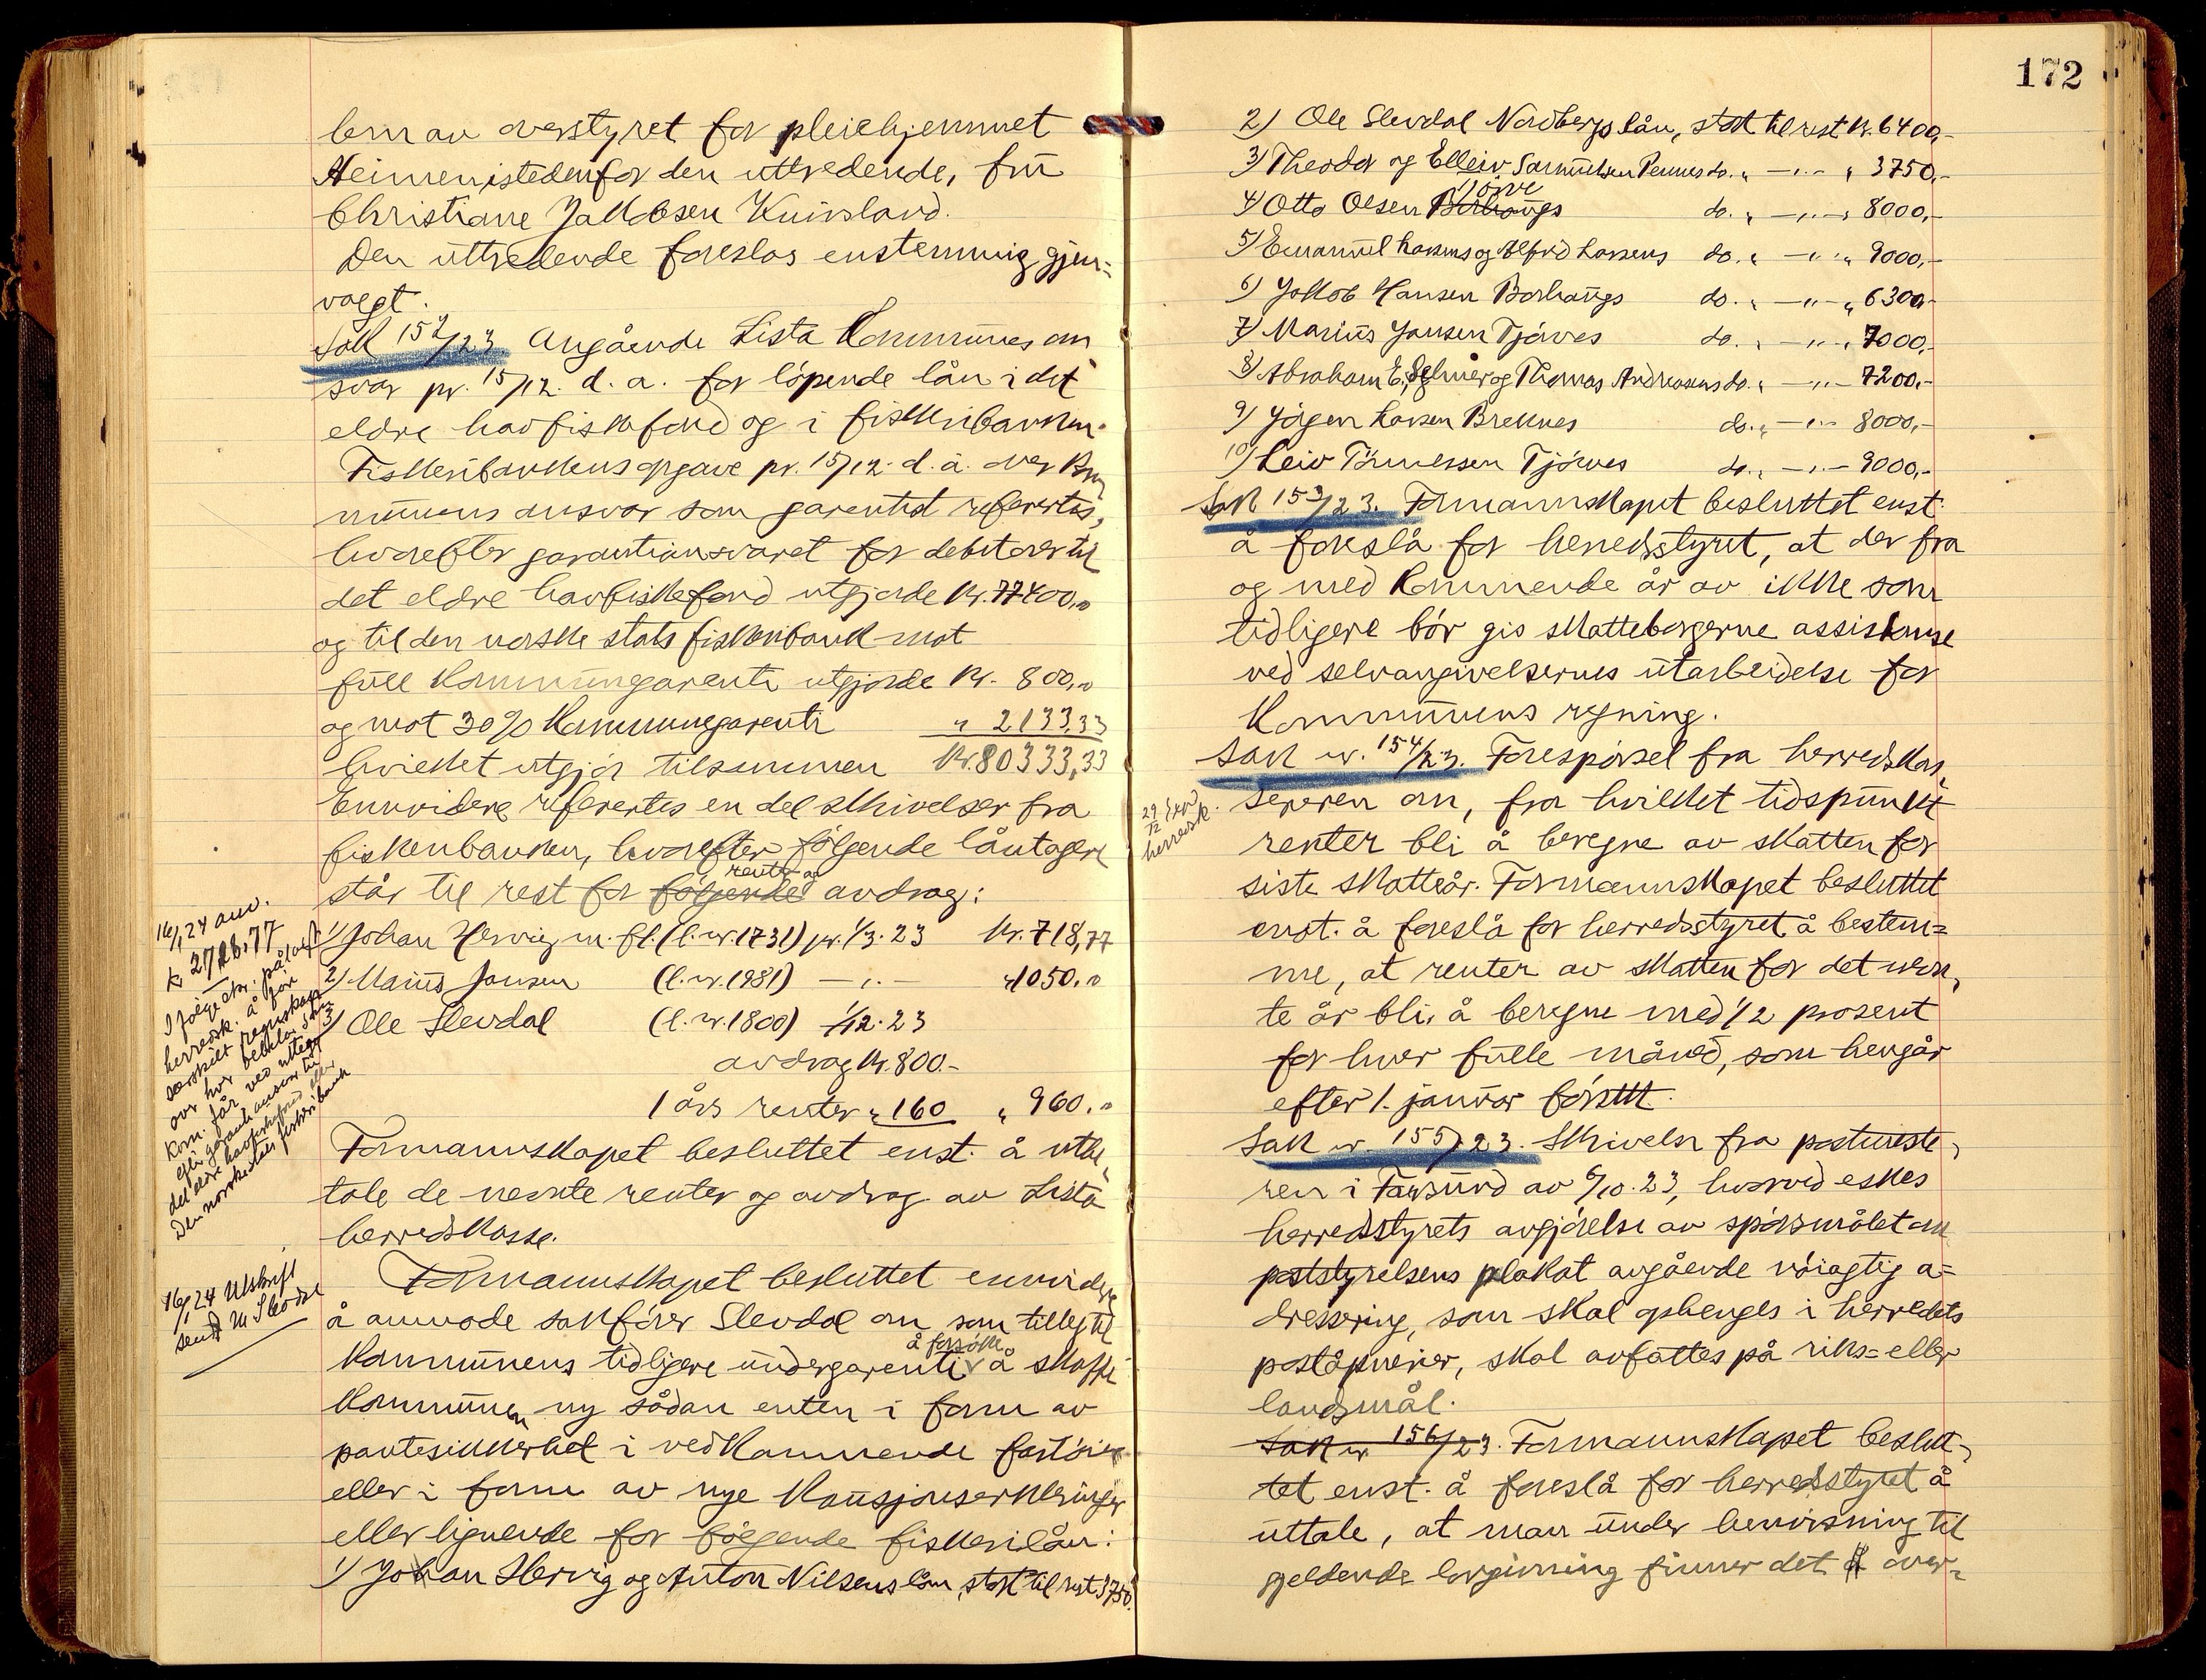 lem av overstyret for pleiehjemmet
Heimen istedenfor den uttredende, frü
Christiane Jakobsen Kvinsland.
Den üttredende foreslas enstemmig gjen=
valgt.
Sak 152/23 Angående Lista kommunes an
svar pr. 15/12. d. a. for löpende lån i det
eldre havfiskefond og i fiskeribanken.
Fiskeribankens opgave pr. 15/12. d. å. over kom
munens ansvar som garantist refertes,
hvorefter garantiansvaret for debitorer til
det eldre havfiskefond utgjorde kr. 77400,00
og til den norske stats fiskeribank mot
full kommunegaranti utgjorde kr. 800,00
og mot 30% kommunegaranti " 2133,33
hvilket utgjör tilsammen kr. 80333,33
Ennvidere refertes en del skrivelser fra
fiskeribanken, hvorefter fölgende låntagere
står til rest for fölgende renter og avdrag:
1) Johan Hervig m. fl. (l. nr. 1731) pr. 1/3. 23 kr. 718,77
2) Marius Jansen (l. nr. 1981) — " — " 1050,00
3) Ole Slevdal (l. nr. 1800) 1/12. 23
avdrag kr. 800.-
1 års renter " 160 " 960.00
Formannskapet besluttet enst. å utbe,
tale de nevnte renter og avdrag av Lista
herredskasse.
Formannskapet besluttet ennvidere
å anmode sakförer Slevdal om som tillegg til
kommunens tidligere undergarantier å forsöke å skaffe
kommunen ny sådan enten i form av
pantesikkerhet i vedkommende fartöier
eller i form av nye kausjonserklæringer
eller lignende for fölgende fiskerilån:
1) Johan Hervig og Anton Nilsens lån, stort til rest 3750.
16/1 24 anv.
kr 2728,77
I fölge skr. pålagt
herredsk. å före
særskilt regnskap
over hvr beløb som
kom. får ved utlegg
efter garantiansvar til
det eldre havfiskefond eller
Den norske stats fiskeribank
16/1 24 Utskrift
sendt M Slevdal
172
2) Ole Slevdal Nordbergs lån, stort til rest kr. 6400,-
3) Theodor og Elleiv Samuelsen Pennes do. " — " — " 3750,-
4) Otto Olsen Borhaugs Tjörve do. " — " — " 8000,-
5) Emanuel Larsens og Alfred Larsens do. " — " — " 9000,-
6) Jakob Hansen Borhaugs do. " — " — " 6300,-
7) Marius Jansen Tjörves do. " — " — " 7000,-
8) Abraham E, Selmer og Thomas Andreasens do. " — " — 7200,-
9) Jörgen Larsen Breknes do. " — " — 8000,-
10) Leiv Tönnessen Tjörves do. " — " — 9000,-
Sak 153/23. Formannskapet besluttet enst.
å foreslå for herredsstyret, at der fra
og med kommende år av ikke som
tidligere bör gis skatteborgerne assistanse
ved selvangivelsernes utarbeidelse for
kommunens regning.
Sak nr. 154/23. Forespörsel fra herredskas,
29/12 send
herredsk.
sereren om, fra hvilket tidspunkt
renter bli å beregne av skatten for
siste skatteår. Formannskapet besluttet
enst. å foreslå for herredsstyret å bestem=
me, at renter av skatten for det nevn,
te år bli å beregne med 1/2 prosent
for hver fülle måned, som hengår
efter 1. januar förstk.
Sak nr. 155/23. Skrivelse fra postmeste,
ren i Farsund av 6/10. 23, hvorved eskes
herredsstyrets avgjörelse av spörsmålet om
poststyrelsens plakat angående nöiagtig a=
dressering, som skal ophenges i herredets
poståpnerier, skal avfattes på riks= eller
landsmål.
Sak nr. 156/23. Formannskapet beslut,
tet enst. å foreslå for herredsstyret å
uttale, at man under henvisning til
gjeldende lovgivning finner det å over=